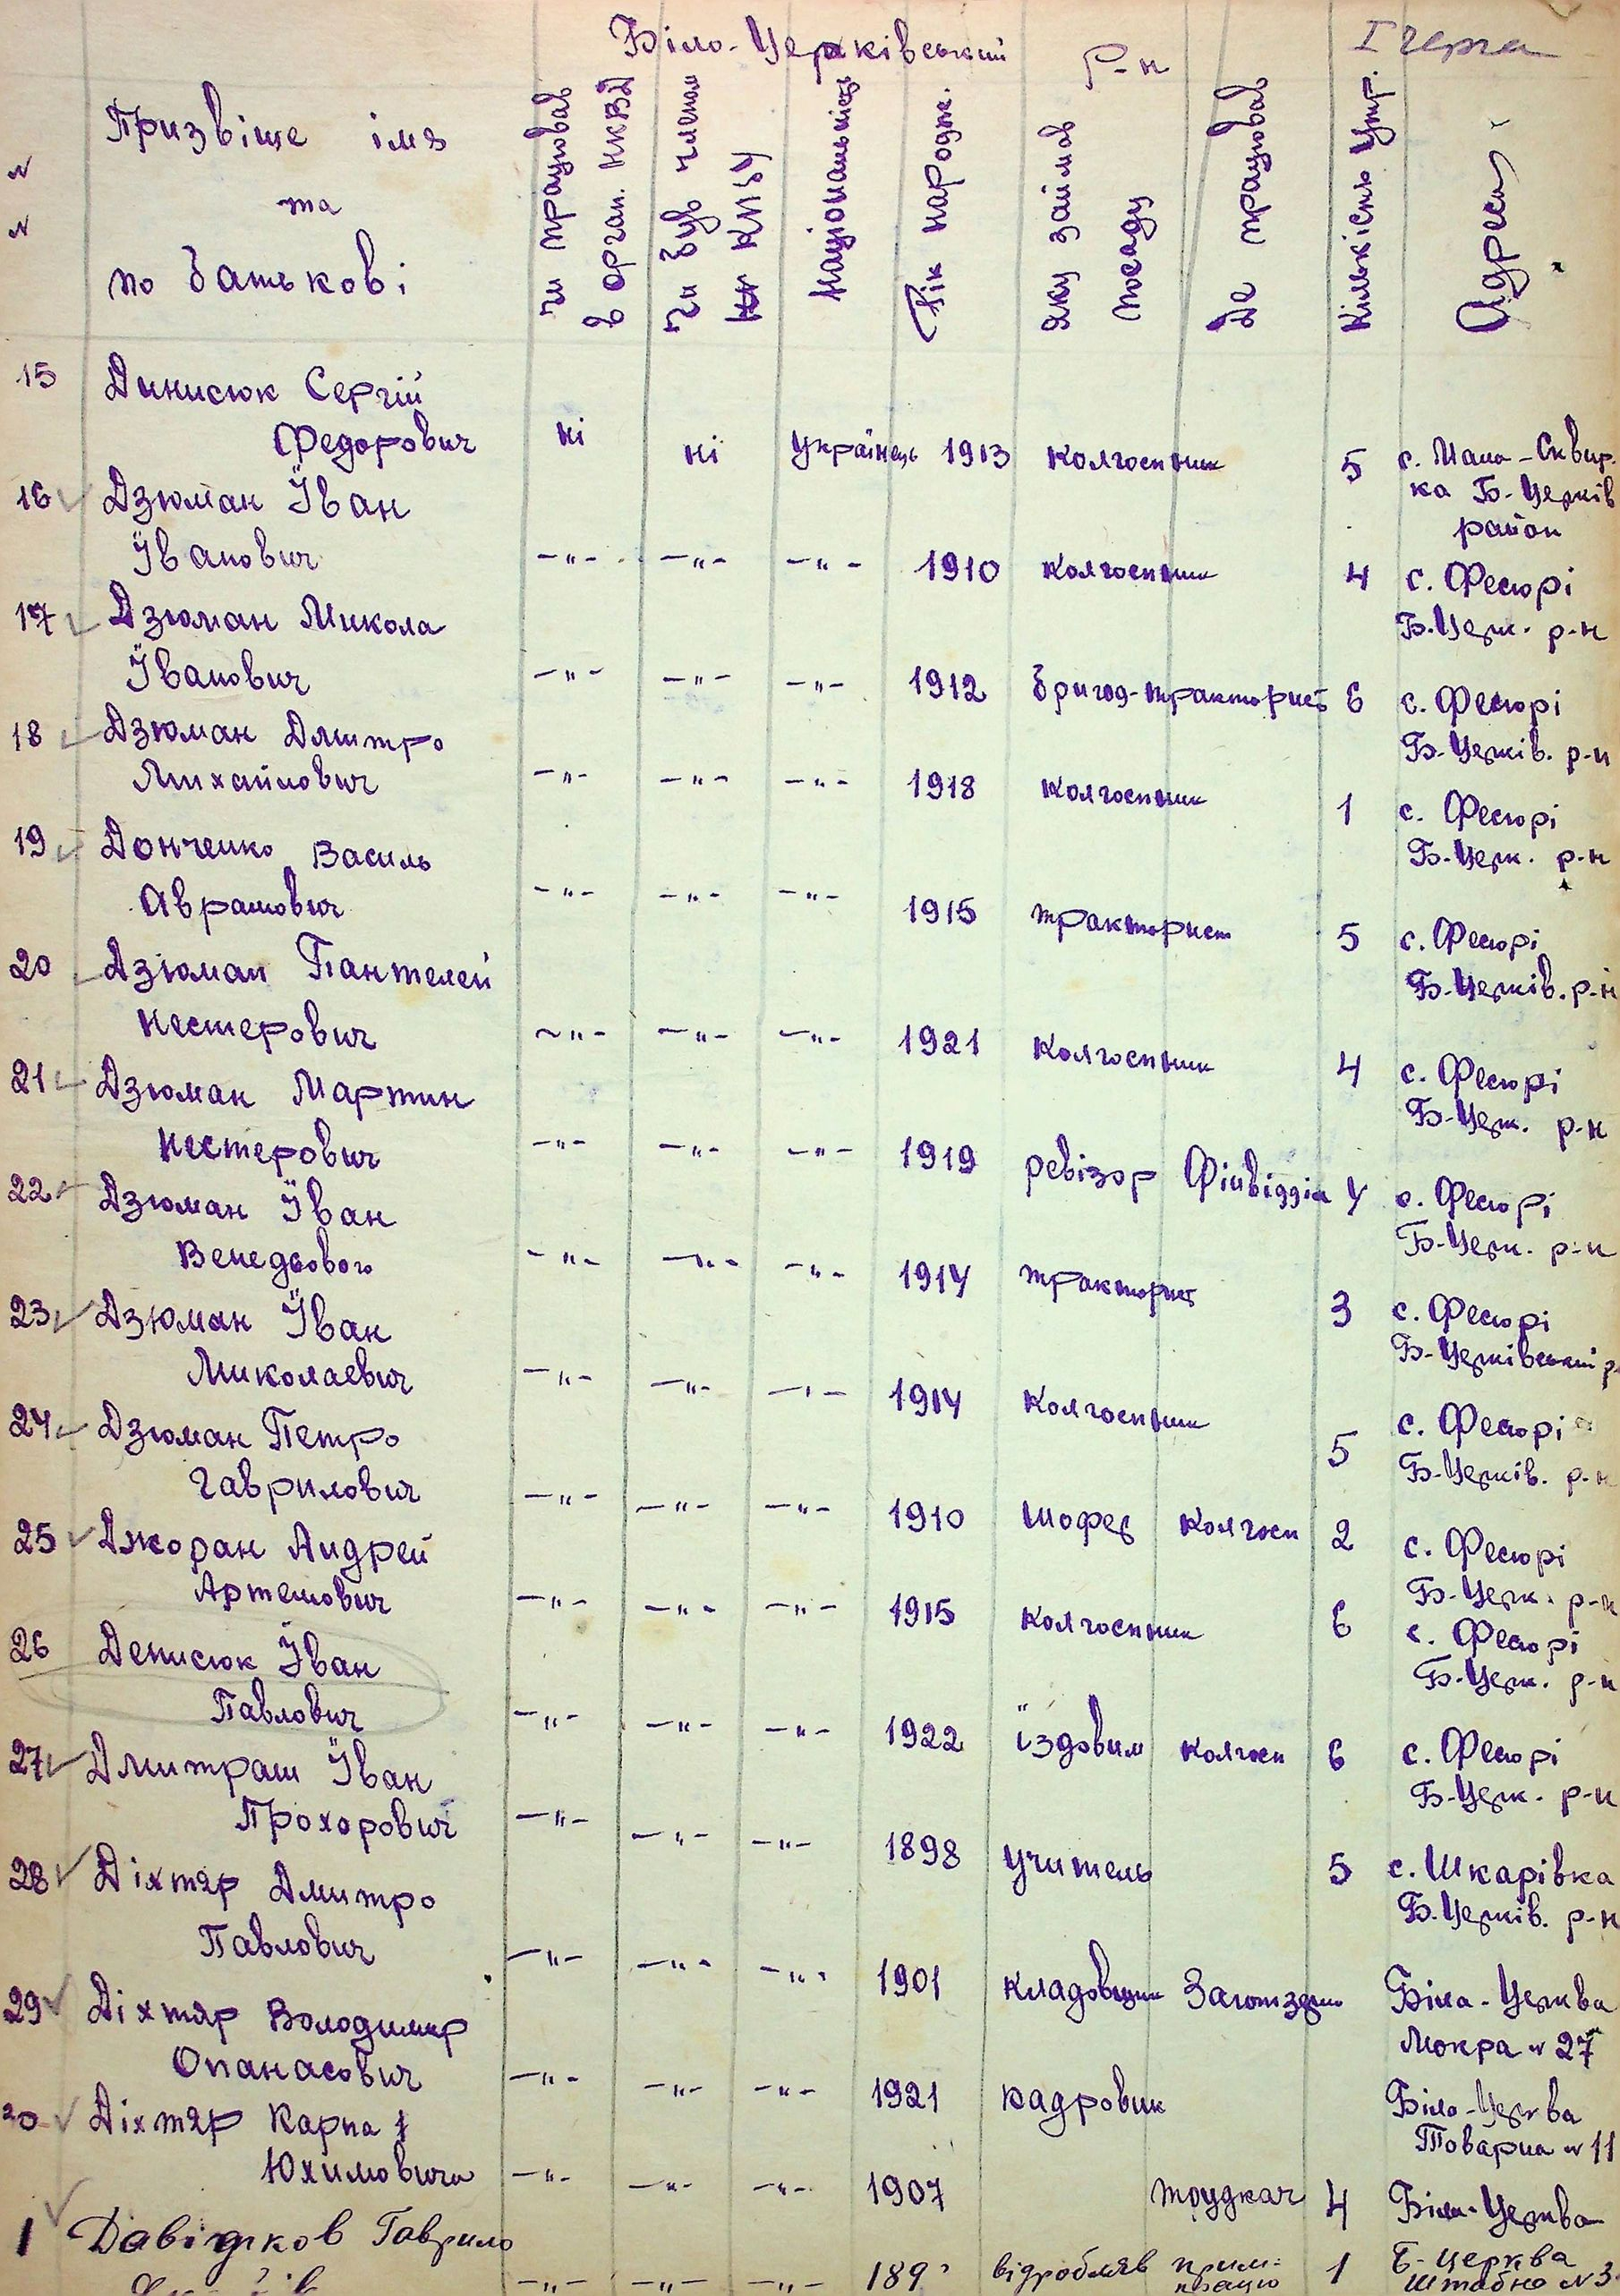 Біло-Церківський р-н І черга
№ № Призвіще імя та по батькові
чи працював в орган. НКВД
чи був членом КПбУ
Національність
Рік народж.
яку займав посаду
Де працював
Кількість утр.
Адреса
15 Динисюк Сергій
Федорович ні ні Українець 1913 колгоспник 5 с. Мала-Сквир.
ка Б-Церків
район
16 Дзюман Їван
Їванович —"— —"— —"— 1910 колгоспник 4 с. Фесюрі
Б.Церк. р-н
17 Дзюман Микола
Їванович —"— —"— —"— 1912 бригад-тракторист 6 с. Фесюрі
Б-Церків. р-н
18 Дзюман Дмитро
Михайлович —"— —"— —"— 1918 колгоспник 1 с. Фесюрі
Б-Церк. р-н
19 Донченко Василь
Аврамович —"— —"— —"— 1915 тракторист 5 с. Фесюрі
Б-Церків. р-н
20 Дзюман Пантелей
Нестерович —"— —"— —"— 1921 колгоспник 4 с. Фесюрі
Б-Церк. р-н
21 Дзюман Мартин
Нестерович —"— —"— —"— 1919 ревізор Фінвідділ 4 с. Фесюрі
Б-Церк. р-н
22 Дзюман Їван
—"— —"— —"— 1914 тракторист 3 с. Фесюрі
Б-Церківський р.
23 Дзюман Їван
Миколаевич —"— —"— —"— 1914 колгоспник 5 с. Фесюрі
Б-Церків. р-н
24 Дзюман Петро
Гаврилович —"— —"— —"— 1910 шофер колгосп 2 с. Фесюрі
Б-Церк. р-н
25 Джоран Андрей
Артемович —"— —"— —"— 1915 колгоспник 6 с. Фесюрі
Б-Церк. р-н
26 Денисюк Їван
Павлович —"— —"— —"— 1922 їздовим колгосп 6 с. Фесюрі
Б-Церк. р-н
27 Дмитраш Їван
Прохорович —"— —"— —"— 1898 учитель 5 с. Шкарівка
Б.Церків. р-н
28 Діхтяр Дмитро
Павлович —"— —"— —"— 1901 кладовщик Заготзерно Біла-Церква
Мокра № 27
29 Діхтяр Володимир
Опанасович —"— —"— —"— 1921 кадровик Біла-Церква
Товарна № 11
30 Діхтяр Карпа
Юхимовича —"— —"— —"— 1907 4 Біла-Церква
1 Давідков Гаврило
—"— —"— —"— 189 відробляв 1 Б-церква
Штабна № 3